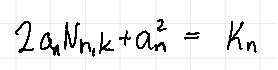 2aₙNₙ,ₖ+aₙ² = Kₙ